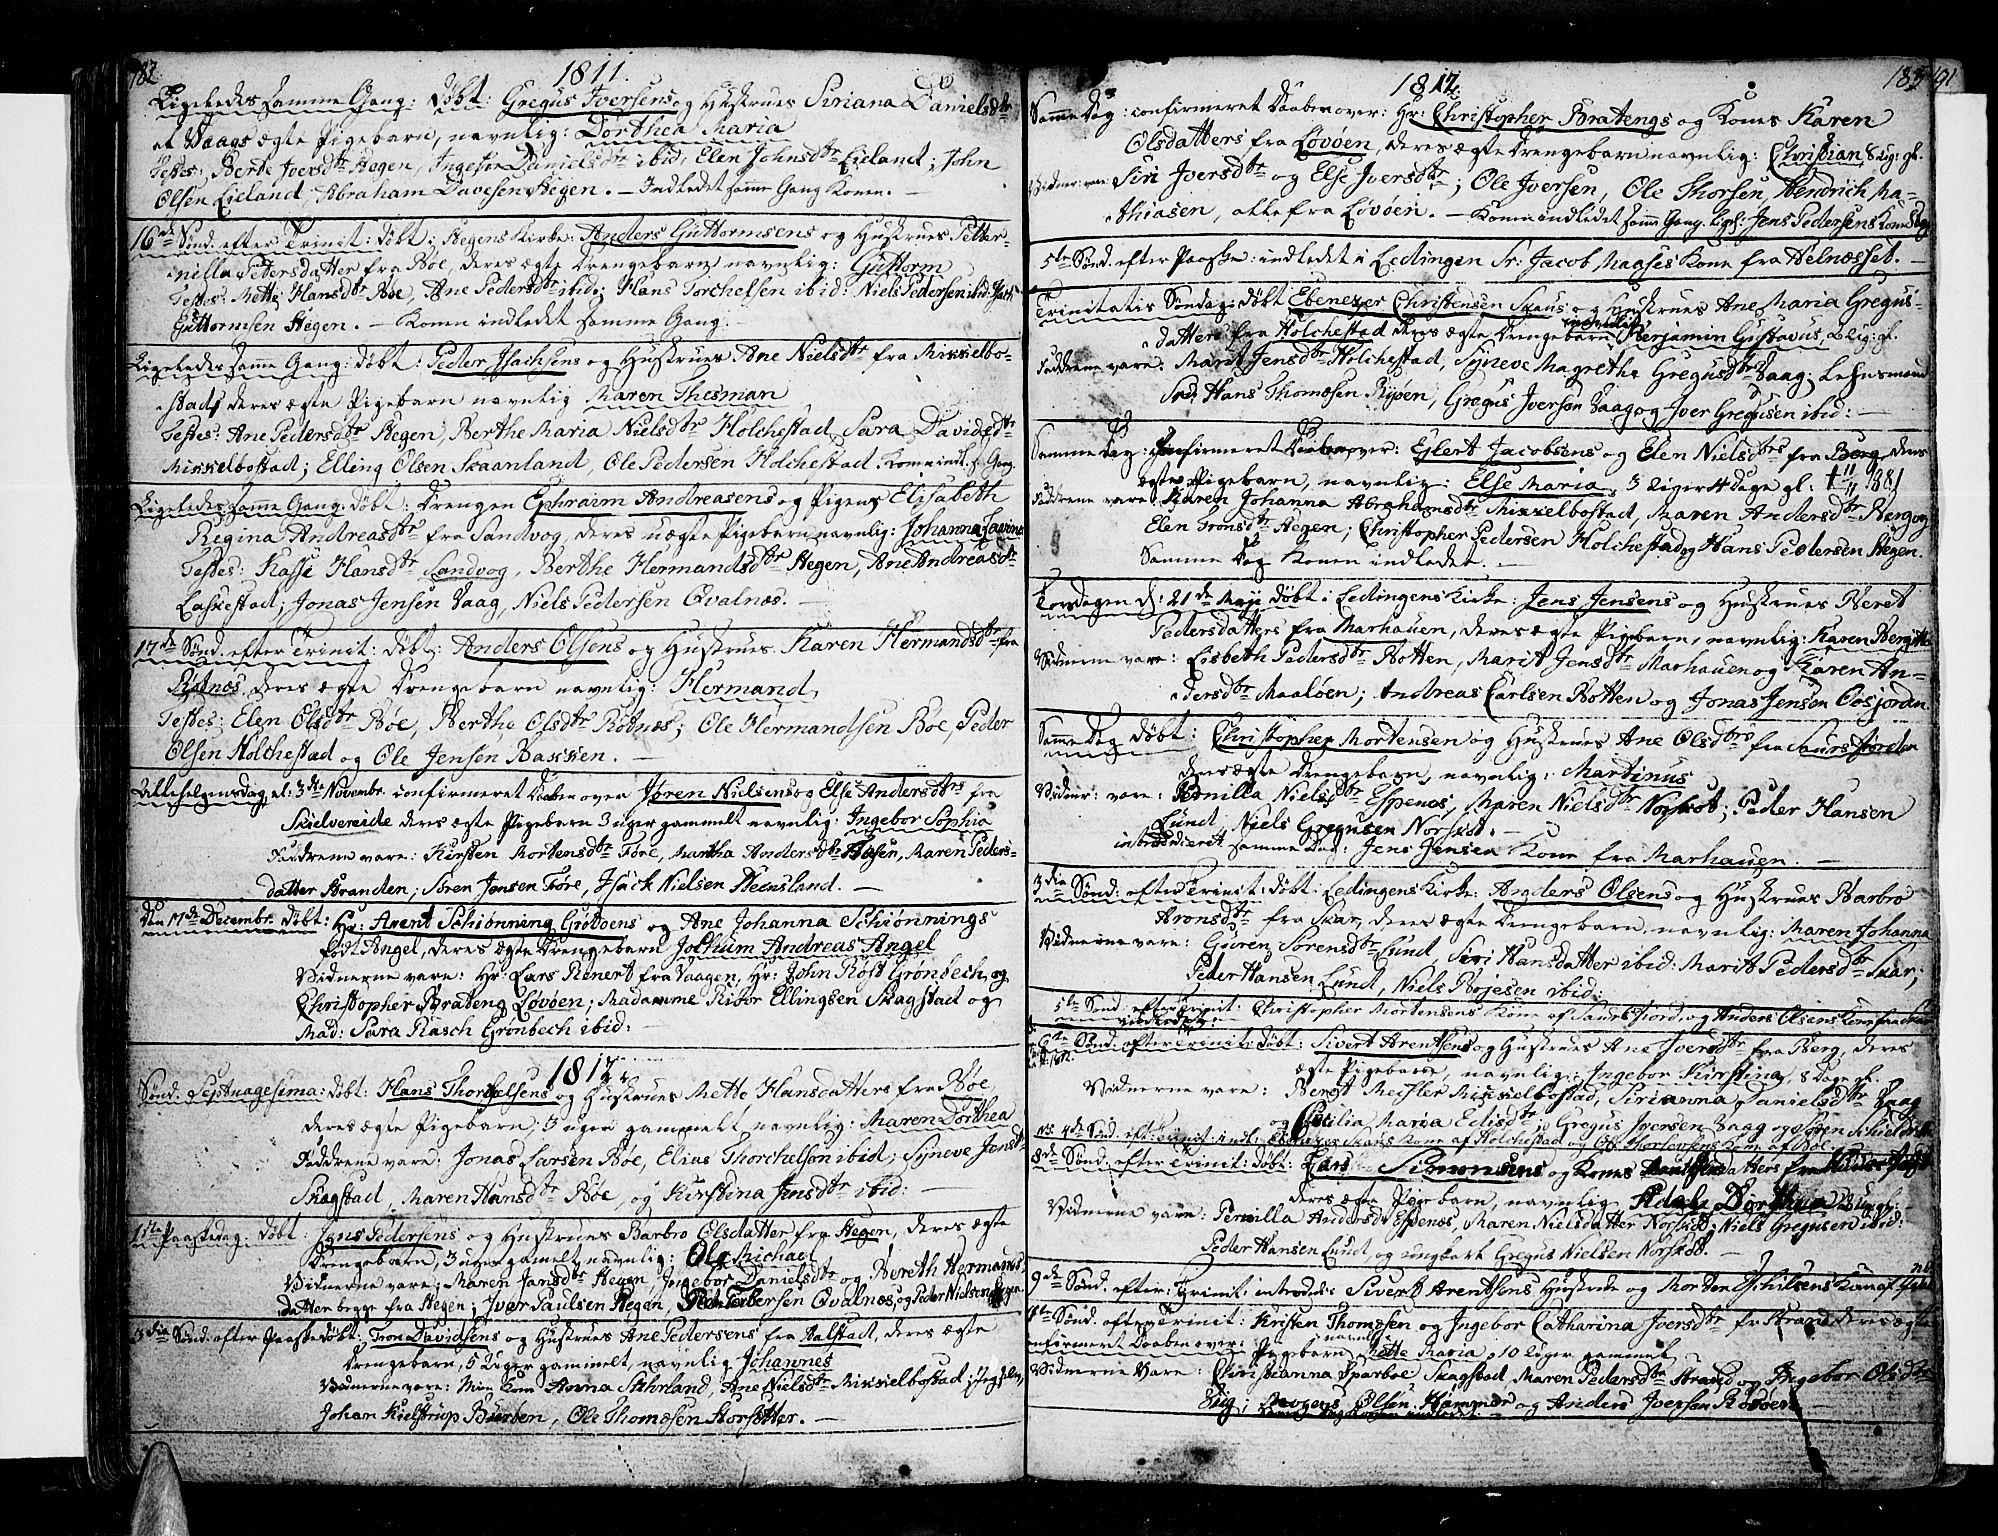 182
1811.
Ligeledes samme Gang: døbt: Gregus Iversens og Hustrues Siriana Danielsdtr
et Vaags ægte Pigebarn, navnlig: Dorthea Maria
Testes: Berte Iversdtr Hegen, Ingebor Danielsdtr ibid, Elen Johnsdtr Lieland; John
Olsen Lieland, Abraham Davesen Hegen. – Indledet samme Gang Konen. –
16de Sønd. efter Trinit: døbt i Hegens Kirke: Anders Guttormsens og Hustrues Petter-
nilla Petersdatter fra Bøe, deres ægte Drengebarn navnlig: Guttorm
Testes: Mette Hansdtr Bøe, Ane Pedersdtr ibid; Hans Torchelsen ibid: Niels Pedersen ibid
Guttormsen Hegen. – Konen indledet samme Gang.
Ligeledes samme Gang: døbt: Peder Isachsens og Hustrues Ane Nielsdtr fra Misselbo-
stad, deres ægte Pigebarn navnlig Maren Thesman
Testes: Ane Pedersdtr Hegen, Berthe Maria Nielsdtr Holchestad, Sara Davidsdtr
Misselbostad; Elling Olsen Skaanland, Ole Pedersen Holchestad. Konen indl. s. Gang.
Ligeledes samme Gang: døbt: Drengen Ephraim Andreasens og Pigens Elisabeth
Regina Andreasdtr fra Sandvog, deres uægte Pigebarn navnlig: Johanna
Testes: Kassi Hansdtr Sandvog, Berthe Hermandsdtr Hegen, Ane Andreasdtr
Laskestad; Jonas Jensen Vaag, Niels Pedersen Qvalnæs. –
17de Sønd. efter Trinit: døbt: Anders Olsens og Hustrues Karen Hermandsdtr fra
Rotnæs, deres ægte Drengebarn navnlig: Hermand,
Testes: Elen Olsdtr Bøe, Berthe Olsdtr Rotnæs; Ole Hermandsen Bøe, Peder
Olsen Holchestad og Ole Jensen Bakken. –
Allehelgensdag, et: 3die Novembr. confirmeret Daaben over Jøren Nielsens og Else Andersdtrs fra
Skielvereide deres ægte Pigebarn 3 uger gammelt navnlig: Ingebor Sophia
Faddrene vare: Kirsten Mortensdtr Føre, Martha Andersdtr Aasen, Maren Peders-
datter Stranden; Søren Jensen Føre, Isack Nielsen Steensland. –
Den 17de Decembr. døbt: Hr: Arent Schiønning Grøtøens og Ane Johanna Schiønnings
født Angel, deres ægte Drengebarn Jochum Andreas Angel
Vidnerne vare: Hr: Lars Rener fra Vaagen, Hr: John Rost Grønbech, og
Christopher Brateng Løvøen; Madamme Ribor Ellingsen Skagstad og
Mad: Sara Rasch Grønbech ibid: –
1812.
Sønd. Septuagesima: døbt: Hans Thorchelsens og Hustrues Mette Hansdatters fra Bøe,
deres ægte Pigebarn, 3 uger gammelt navnlig: Maren Dorthea
Faddrene vare: Jonas Larsen Bøe, Elias Thorchelsøn ibid; Syneve Jensdtr
Skagstad, Maren Hansdtr Bøe, og Kirstina Jensdtr ibid: –
1ste Paaskedag. døbt: Jens Pedersens og Hustrues Barbro Olsdatter fra Hegen, deres ægte
Drengebarn, 3 uger gamelt navnlig: Ole Michael
Vidnerne vare: Maren Jansdtr Hegen, Ingebor Danielsdtr og Bereth Hermans-
datter begge fra Hegen; Iver Paulsen Hegen, Peder Torbersen Qvalnæs, og Peder Nielsen Hegen
3die Sønd. efter Paaske døbt: Tron Davidsens og Hustrues Ane Pedersens fra Aalstad, deres ægte
Drengebarn, 5 Uger gammelt, navnlig Johannes
Vidnerne vare: Min Kone Anna Stehrland, Ane Nielsdtr Misselbostad; Jeg selv,
Johan Kielstrup Burben, Ole Thomæsen Storsetter. –
1812.
183
191
Samme Dag: confirmeret Daaben over: Hr: Christopher Bratengs og Kones Karen
Olsdatters fra Løvøen, deres ægte Drengebarn navnlig: Christian 8 Uger gl.
Vidner: vare Siri Iversdtr og Else Iversdtr; Ole Iversen, Ole Thorsen, Hendrich Ma-
thiasen, alle fra Løvøen. – Konen indledet samme Gang. Lige: Jens Pedersens Kone Hegen
5te Sønd. efter Paaske: indledet i Lødingen Sr: Jacob Maases Kone fra Helnæsset. –
Trinitatis Søndag: døbt Ebenezer Christensen Skaus og Hustrues Ane Maria Gregus-
datters fra Holchestad deres ægte Drengebarn navnlig Benjamin Gustavus, 2 Uger gl.
Faddrene vare: Marit Jensdtr Holchestad, Syneve Magrethe Gregusdtr Vaag; Lehnsmand
Sr: Hans Thomæsen Rypøen, Gregus Iversøn Vaag og Iver Gregusen ibid: –
Samme Dag: confirmeret Daaben over: Eylert Jacobsens og Elen Nielsdtrs fra Borg deres
ægte Pigebarn, navnlig: Else Maria, 3 Uger 4 dage gl: † 11/11 1881
Faddrene vare: Karen Johanna Abrahamsdtr Misselbostad, Maren Andersdtr Berg og
Elen Tronsdtr Hegen; Christopher Pedersen Holchestad og Hans Pedersen Hegen.
Samme Dag Konen indledet. –
Torsdagen d: 21de Maji døbt i Lødingens Kirke: Jens Jensens og Hustrues Beret
Pedersdatters fra Marhauen, deres ægte Pigebarn, navnlig: Karen Bergitte
Vidnerne vare: Lisbeth Pedersdtr Botten, Marit Jensdtr Marhauen og Karen An-
dersdtr Maaløen; Andreas Carlsen Botten og Jonas Jensøn Oosjorden.
Samme Dag døbt: Christopher Mortensen og Hustrues Ane Olsdtrs fra Saursfiorden
deres ægte Drengebarn, navnlig: Martinus
Vidner: vare: Pernilla Nielsdtr Espenes, Maren Nielsdtr Norskot; Peder Hansen
Lund, Niels Gregusen Norskot. –
introduceret samme Dag: Jens Jensen Kone fra Marhauen. –
3die Sønd: efter Trinit: døbt: i Lødingens Kirke: Anders Olsens og Hustrues Barbro
Aronsdtr fra Skar, deres ægte Drengebarn navnlig: Maren Johanna
Vidnerne vare: Guren Sørensdtr Lund, Siri Hansdatter ibid: Marit Pedersdtr Skar;
Peder Hansen Lund, Niels Bojesen ibid:
5te Sønd. efter Trinit: Christopher Mortensens Kone af Saursfiord, og Anders Olsens Kone fra Skar
6te Sønd: efter Trinit: døbt: Sivert Arentsens og Hustrues Ane Iversdtr fra Berg, deres
ægte Pigebarn, navnlig: Ingebor Kirstina, 8 Dage gl.
Vidnerne vare: Beret Mechler Misselbostad, Sirianna Danielsdtr Vaag
og Cecilia Maria Edisdtr, Gregus Iversen Vaag og Søren
NB. 4de Sønd. eft: Trinit: indl: Ebenezer Skaus Kone af Holchestad og Thorlersens Kone af Bøe
8de Sønd: efter Trinit: døbt: Lars Simonsens og Kones
deres ægte Pigebarn, navnlig Adals Dorthea
Vidnerne vare: Pernilla Andersd. Espenes, Maren Nielsdatter Norskot; Niels Gregusen ibid:
Peder Hansen Lund, og ungkarl Gregus Nielsen Norskot. –
9de Sønd. efter: Trinit introd: Sivert Arentsens Hustrue og Morten Ichilsens Kone af
Sønd. efter Trinit: Kristen Thomæsen og Ingebor Catharina Iversdtr fr Strand deres ægte
confirmert Daaben over: Pigebarn navnl: Mette Maria, 10 Uger gammel
Vidnerne Vare: Christianna Sparboe Skagstad, Maren Pedersdtr Strand og Ingebor Olsdtr
Olsen Hammer og Anders Iversen Rotøen –